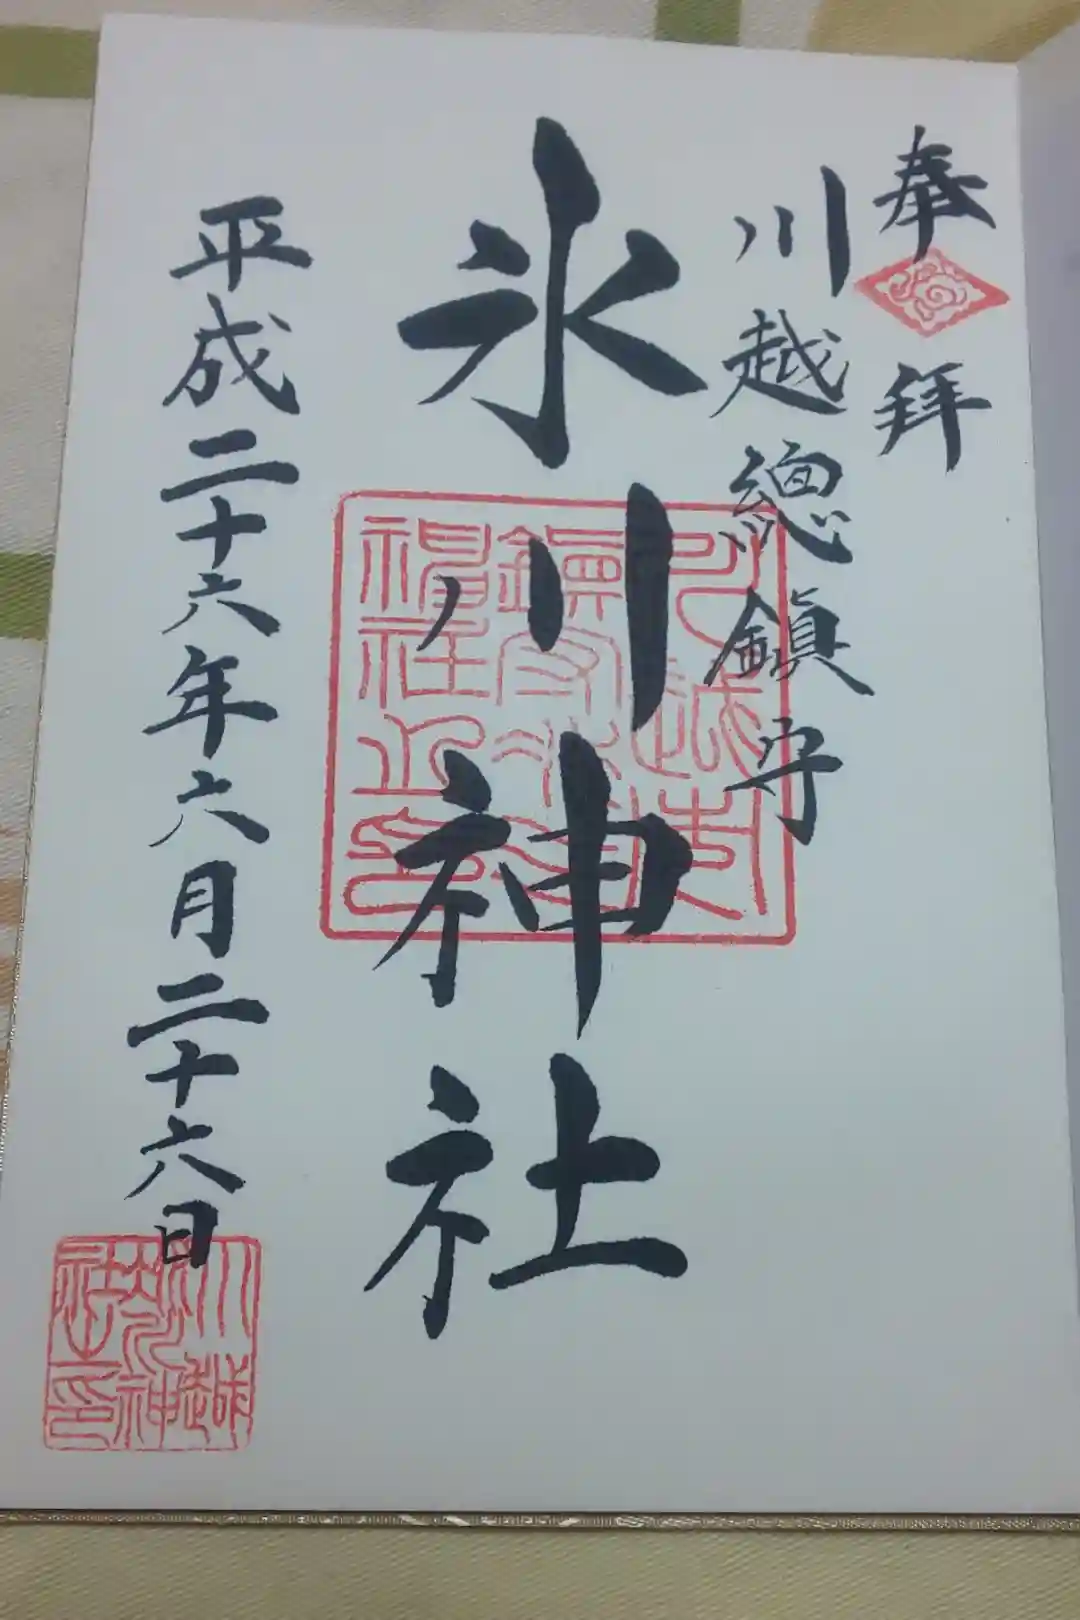 奉拝
川越總鎮守
氷川神社
平成二十六年六月二十六日
川越
氷川神
社之印